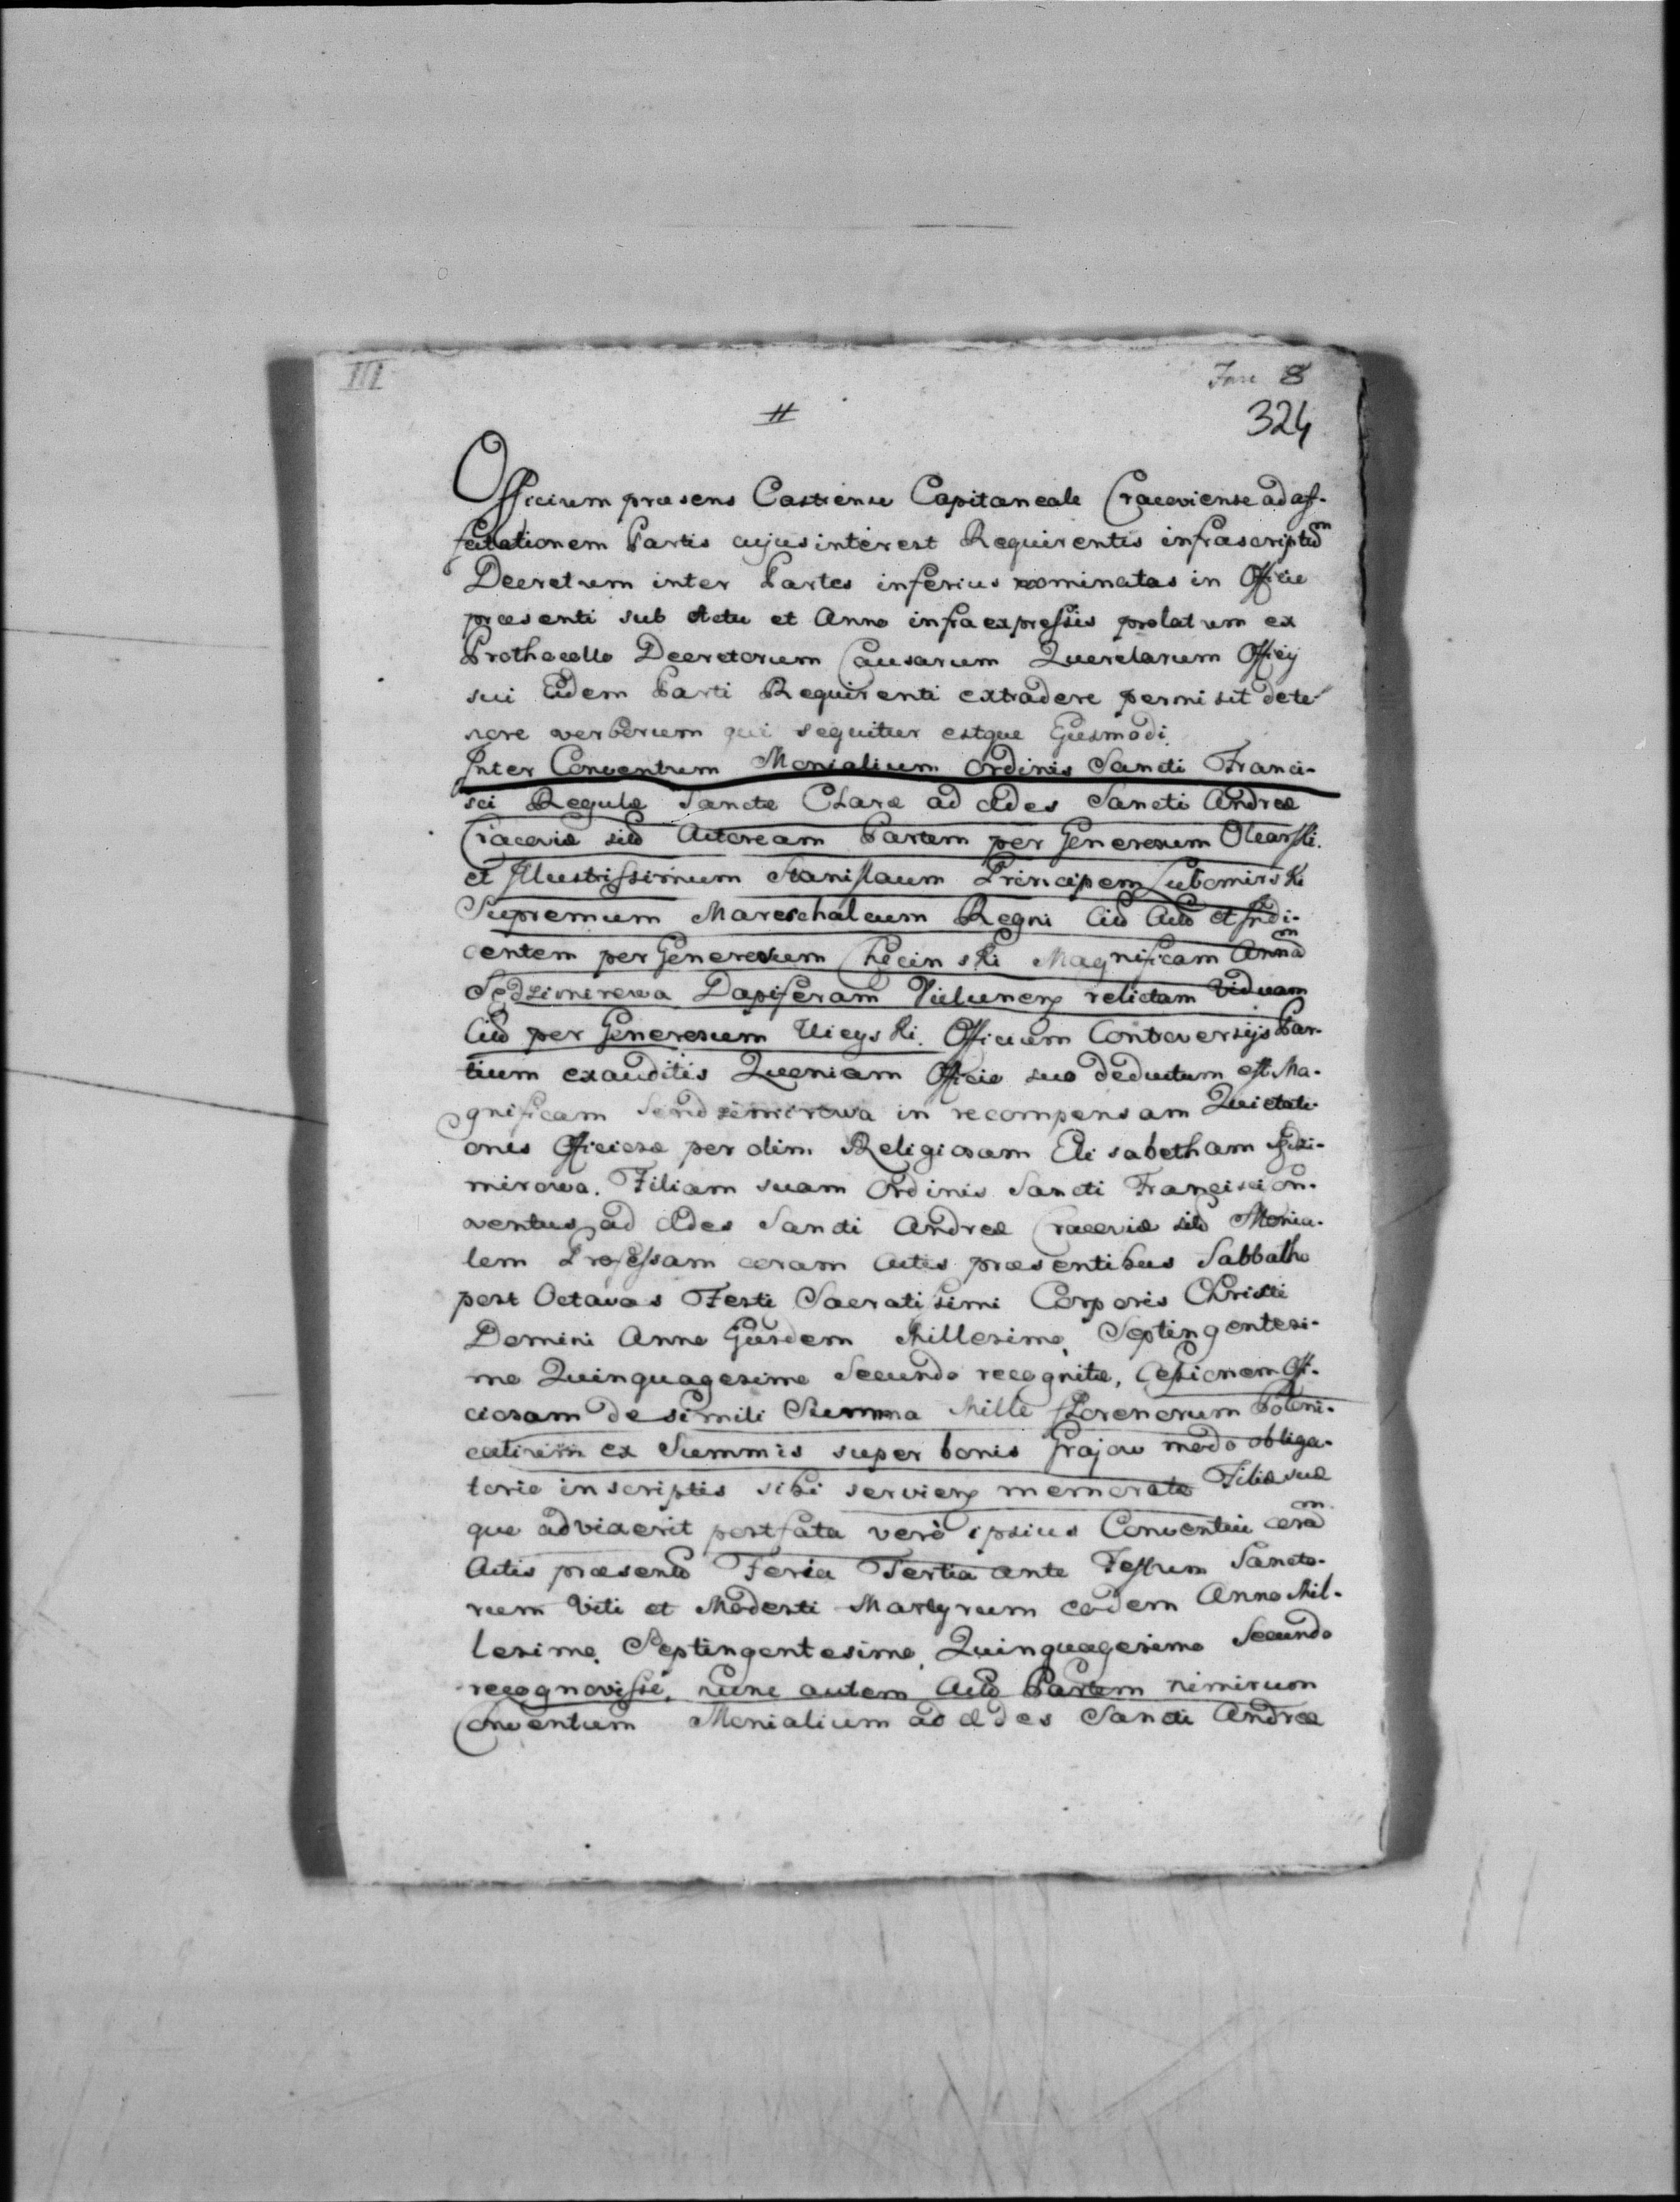 III
8
324
#
Officium præsens Castrense Capitaneale Cracoviense ad af-
fectationem Partis cujus interest Requirentis infrascriptũ
Decretum inter Partes inferius nominatas in Officio
præsenti sub Actu et Anno infra expressis prolatum ex
Prothocollo Decretorum Causarum Querelarum Officij
sui Eidem Parti Requirenti extradere permisit de te-
nore verborum qui sequitur estque Ejusmodi.
Inter Conventum Monialium Ordinis Sancti Franci-
sci Regulæ Sanctæ Claræ ad Ædes Sancti Andreæ
Cracoviæ sitũ Actoream Partem per Generosum Olearski.
et Illustrissimum Stanislaum Principem Lubomirski
Supremum Mareschalcum Regni Citũ Actũ et Indi-
centem per Generosum Checinski Magnificam Annã
Sędzimirowa Dapiferam Vielunens relictam Viduam
Citũ per Generosum Uieyski. Officium Controversijs Par-
tium exauditis Quoniam Officio suo deductum est Ma-
gnificam Sendzimirowa in recompensam Quietati-
onis Officiosæ per olim Religiosam Elisabetham Sędzi-
mirowa. Filiam suam Ordinis Sancti Francisci Con-
ventus ad Ædes Sancti Andreæ Cracoviæ sitũ Monia-
lem Professam coram Actis præsentibus Sabbatho
post Octavas Festi Sacratissimi Corporis Christi
Domini Anno Ejusdem Millesimo Septingentesi-
mo Quinquagesimo Secundo recognitæ, Cessionem Offi-
ciosam de simili Summa Mille Florenorum Poloni-
calium ex Summis super bonis Grajow modo obliga-
torio inscriptis sibi serviens memoratæ Filiæ suæ
quo advixerit post fata verò ipsius Conventui corã
Actis præsentũ Feria Tertia ante Festum Sancto-
rum Viti et Modesti Martyrum eodem Anno Mil-
lesimo Septingentesimo Quinquagesimo Secundo
recognovisse, nunc autem Actũ Partem nimirum
Conventum Monialium ad Ædes Sancti Andreæ